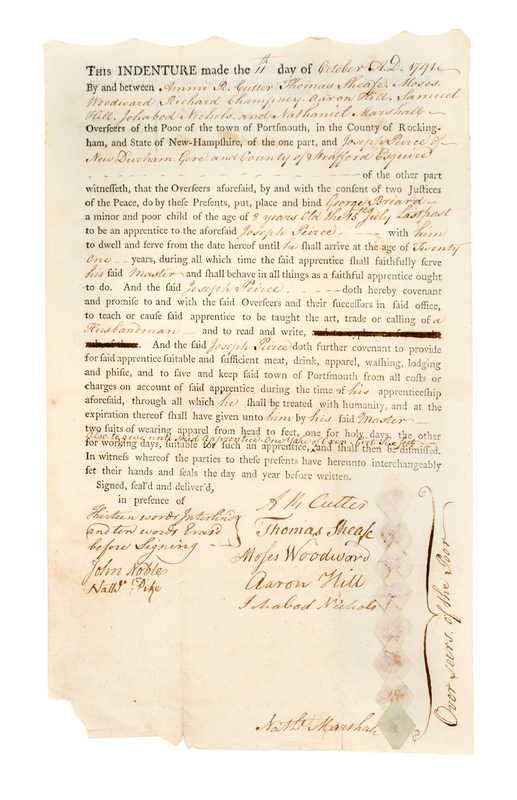 THIS INDENTURE made the 11th day of October A.D. 1791
By and between Ammi R. Cutter Thomas Sheafe, Moses
Woodward Richard Champney, Aaron Hill, Samuel
Hill, Ichabod Nichols, and Nathaniel Marshall
Overseers of the Poor of the town of Portsmouth, in the County of Rocking-
ham, and State of New-Hampshire, of the one part, and Joseph Peirce of
New Durham Gore and County of Strafford Esquire
of the other part
witnesseth, that the Overseers aforesaid, by and with the consent of two Justices
of the Peace, do by these Presents, put, place and bind George Briard
a minor and poor child of the age of 8 years Old the 15th July Last past
to be an apprentice to the aforesaid Joseph Peirce with him
to dwell and serve from the date hereof until he shall arrive at the age of Twenty
One years, during all which time the said apprentice shall faithfully serve
his said Master and shall behave in all things as a faithful apprentice ought
to do. And the said Joseph Peirce doth hereby covenant
and promise to and with the said Overseers and their successors in said office,
to teach or cause said apprentice to be taught the art, trade or calling of a
Husbandman and to read and write,
And the said Joseph Peirce doth further covenant to provide
for said apprentice suitable and sufficient meat, drink, apparel, washing, lodging
and phisic, and to save and keep said town of Portsmouth from all costs or
charges on account of said apprentice during the time of his apprenticeship
aforesaid, through all which he shall be treated with humanity, and at the
expiration thereof shall have given unto him by his said Master
two suits of wearing apparel from head to feet, one for holy days, the other
Also to give unto said Apprentice, One Yoke of Oxen
for working days, suitable for such an apprentice, and shall then be dismissed.
In witness whereof the parties to these presents have hereunto interchangeably
set their hands and seals the day and year before written.
Signed, seal'd and deliver'd,
in presence of
Thirteen words Interlined
and ten words Erasd
before Signing
John Noble
Nathl Pike
A R Cutter
Thomas Sheafe
Moses Woodward
Aaron Hill
Ichabod Nichols
Nathl Marshall
Overseers of the Poor